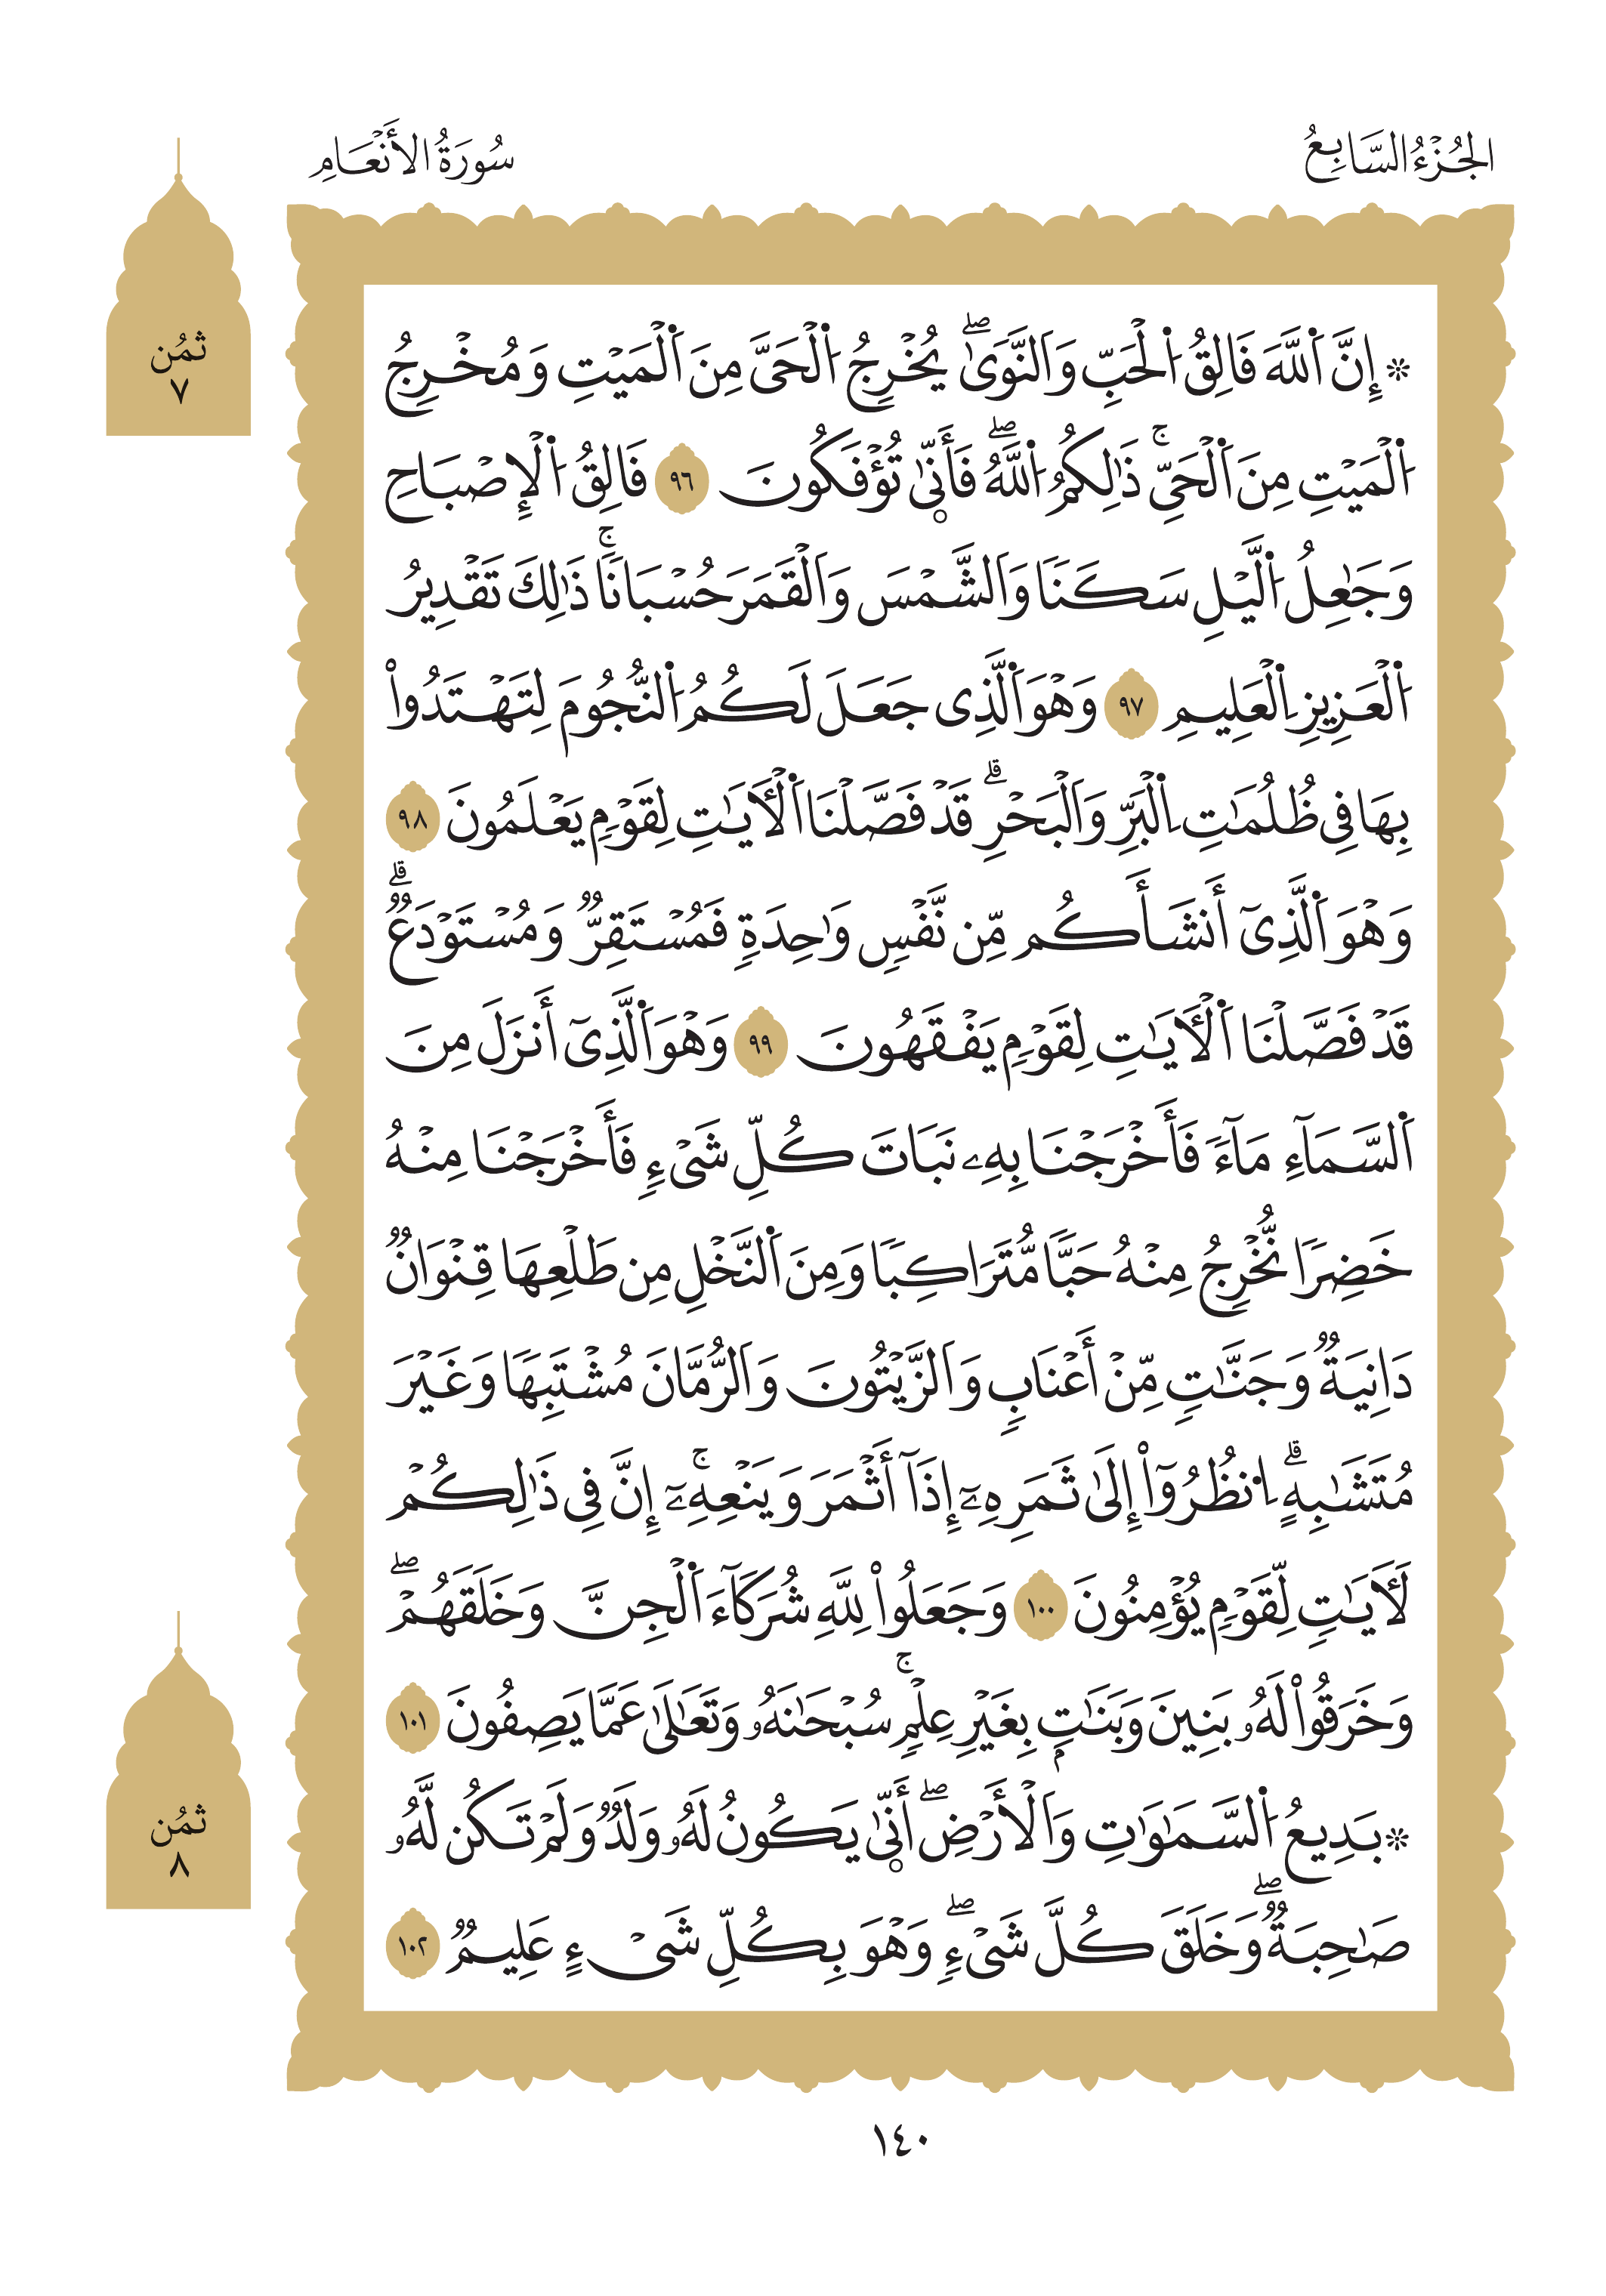 الجُزْءُ السَّابِعُ
سُورَةُ الأَنْعَامِ
ثُمُن
٧
۞ إِنَّ اَ۬للَّهَ فَالِقُ اُ۬لْحَبِّ وَالنَّوَىٰۖ يُخْرِجُ اُ۬لْحَيَّ مِنَ اَ۬لْمَيْتِ وَمُخْرِجُ
اُ۬لْمَيْتِ مِنَ اَ۬لْحَيِّۚ ذَٰلِكُمُ اُ۬للَّهُۖ فَأَنّ۪ىٰ تُؤْفَكُونَ ٩٦ فَالِقُ اُ۬لْإِصْبَاحِ
وَجَٰعِلُ اُ۬لَّيْلِ سَكَنٗا وَالشَّمْسَ وَالْقَمَرَ حُسْبَانٗاۚ ذَٰلِكَ تَقْدِيرُ
اُ۬لْعَزِيزِ اِ۬لْعَلِيمِ ٩٧ وَهْوَ اَ۬لَّذِى جَعَلَ لَكُمُ اُ۬لنُّجُومَ لِتَهْتَدُواْ
بِهَا فِى ظُلُمَٰتِ اِ۬لْبَرِّ وَالْبَحْرِۗ قَدْ فَصَّلْنَا اَ۬لْأٓيَٰتِ لِقَوْمٖ يَعْلَمُونَ ٩٨
وَهْوَ اَ۬لَّذِىٓ أَنشَأَكُم مِّن نَّفْسٖ وَٰحِدَةٖ فَمُسْتَقِرّٞ وَمُسْتَوْدَعٞۗ
قَدْ فَصَّلْنَا اَ۬لْأٓيَٰتِ لِقَوْمٖ يَفْقَهُونَ ٩٩ وَهْوَ اَ۬لَّذِىٓ أَنزَلَ مِنَ
اَ۬لسَّمَآءِ مَآءٗ فَأَخْرَجْنَا بِهِۦ نَبَاتَ كُلِّ شَىْءٖ فَأَخْرَجْنَا مِنْهُ
خَضِرٗا نُّخْرِجُ مِنْهُ حَبّٗا مُّتَرَاكِبٗا وَمِنَ اَ۬لنَّخْلِ مِن طَلْعِهَا قِنْوَانٞ
دَانِيَةٞ وَجَنَّٰتٖ مِّنْ أَعْنَابٖ وَالزَّيْتُونَ وَالرُّمَّانَ مُشْتَبِهٗا وَغَيْرَ
مُتَشَٰبِهٍۗ اِ۟نظُرُوٓاْ إِلَىٰ ثَمَرِهِۦٓ إِذَآ أَثْمَرَ وَيَنْعِهِۦٓۚ إِنَّ فِى ذَٰلِكُمْ
لَأٓيَٰتٖ لِّقَوْمٖ يُؤْمِنُونَ ١٠٠ وَجَعَلُواْ لِلَّهِ شُرَكَآءَ اَ۬لْجِنَّ وَخَلَقَهُمْۖ
وَخَرَقُواْ لَهُۥ بَنِينَ وَبَنَٰتِۭ بِغَيْرِ عِلْمٖۚ سُبْحَٰنَهُۥ وَتَعَٰلَىٰ عَمَّا يَصِفُونَ ١٠١
۞ بَدِيعُ اُ۬لسَّمَٰوَٰتِ وَالْأَرْضِۖ أَنّ۪ىٰ يَكُونُ لَهُۥ وَلَدٞ وَلَمْ تَكُن لَّهُۥ
صَٰحِبَةٞۖ وَخَلَقَ كُلَّ شَىْءٖۖ وَهْوَ بِكُلِّ شَىْءٍ عَلِيمٞ ١٠٢
ثُمُن
٨
١٤٠